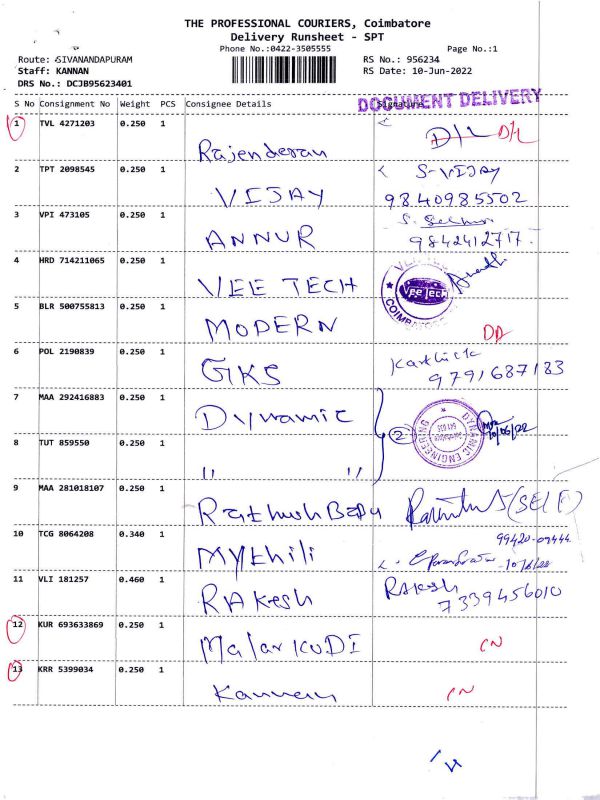 THE PROFESSIONAL COURIERS, Coimbatore
Delivery Runsheet - SPT
Phone No.:0422-3505555 Page No.:1
Route: SIVANANDAPURAM RS No.: 956234
Staff: KANNAN RS Date: 10-Jun-2022
DRS No.: DCJB95623401
DOCUMENT DELIVERY
S No Consignment No Weight PCS Consignee Details Signature
1 TVL 4271203 0.250 1
Rajenderan D/L D/L
2 TPT 2098545 0.250 1 S-VIJAY
VIJAY 9840985502
3 VPI 473105 0.250 1
ANNUR 9842412717.
4 HRD 714211065 0.250 1
VEE TECH Vee Tech COIMBATORE
5 BLR 500755813 0.250 1
MODERN DD
6 POL 2190839 0.250 1 Karthick
GKS 9791687183
7 MAA 292416883 0.250 1
Dynamic 2 DYNAMIC ENGINEERING 10/06/22
8 TUT 859550 0.250 1
" "
9 MAA 281018107 0.250 1
Rathush Babu (SELF)
10 TCG 8064208 0.340 1 99420-09444
Mythili 10/6/22
11 VLI 181257 0.460 1 RAkesh
RAkesh 7339456010
12 KUR 693633869 0.250 1
MalarKUDI CN
13 KRR 5399034 0.250 1
Kannan CN